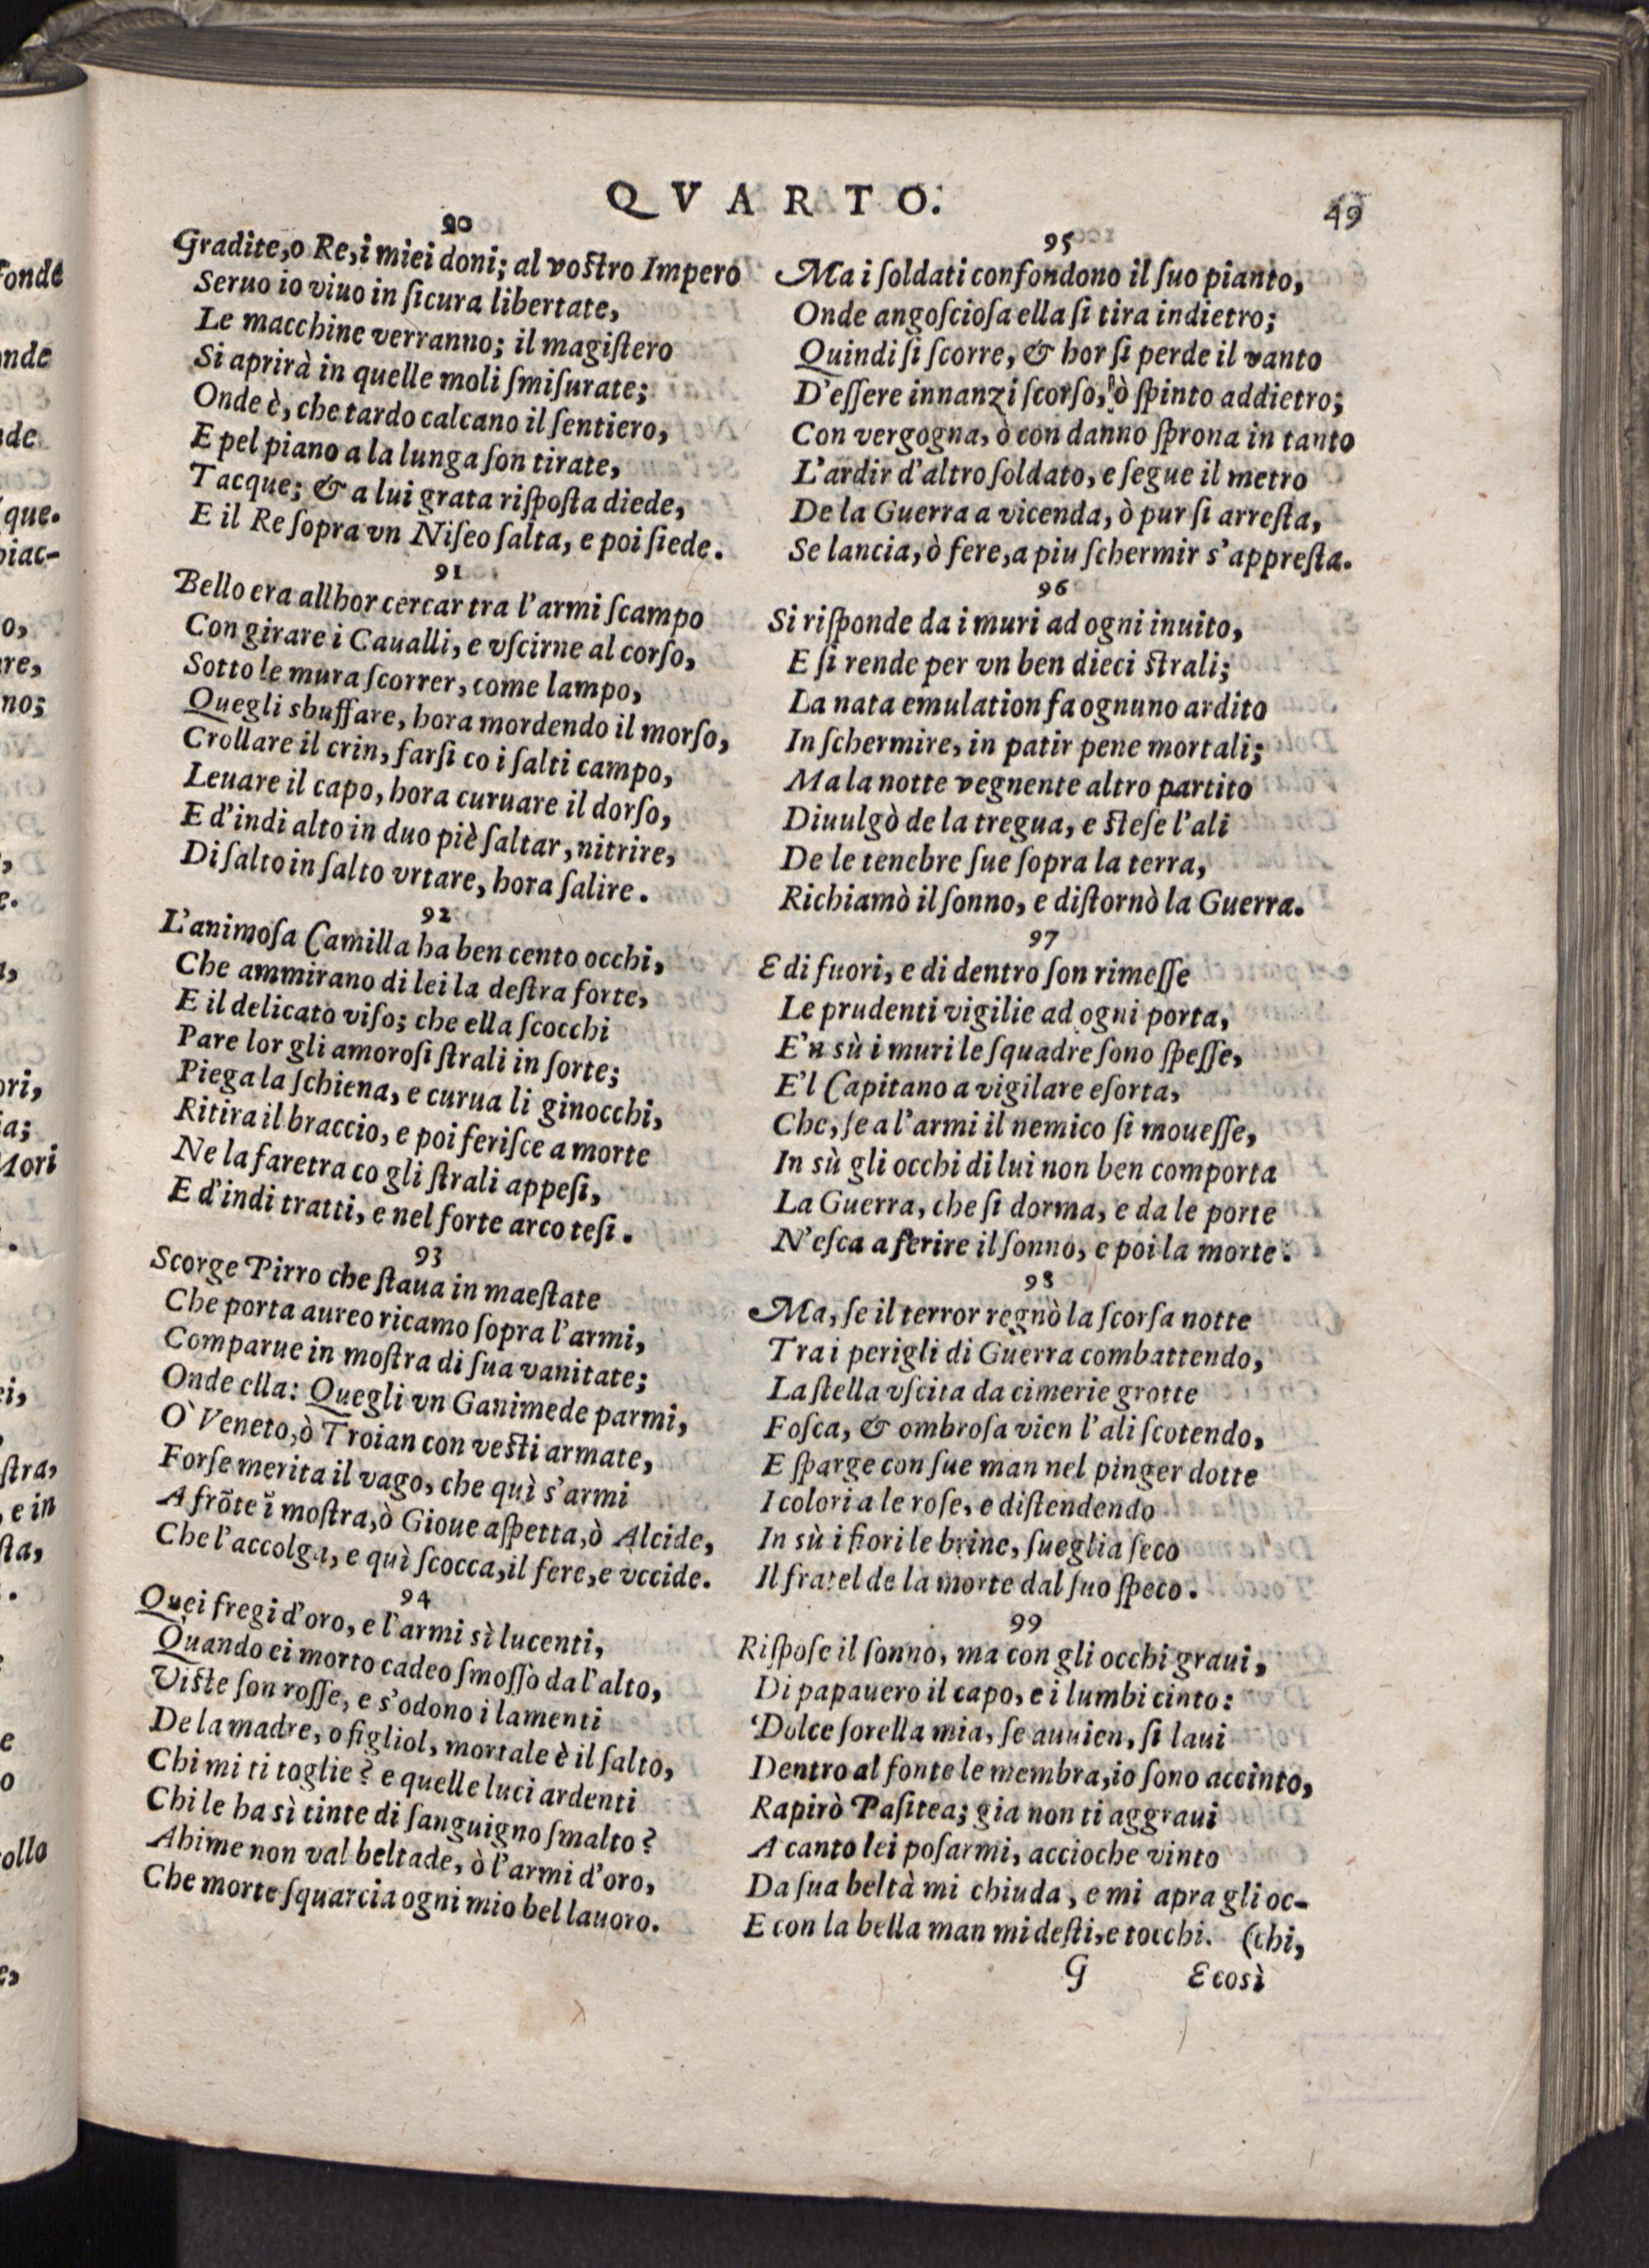 QVARTO.
49
90
Gradite, o Re, i miei doni; al vostro Impero
Seruo io viuo in ſicura libertate,
Le macchine verranno; il magiſtero
Si aprirà in quelle moli ſmiſurate;
Onde è, che tardo calcano il ſentiero,
E pel piano a la lunga ſon tirate,
Tacque; & a lui grata riſpoſta diede,
E il Re ſopra vn Niſeo ſalta, e poi ſiede.
91
Bello era allhor cercar tra l'armi ſcampo
Con girare i Caualli, e vſcirne al corſo,
Sotto le mura ſcorrer, come lampo,
Quegli sbuffare, hora mordendo il morſo,
Crollare il crin, farſi co i ſalti campo,
Leuare il capo, hora curuare il dorſo,
E d'indi alto in duo piè ſaltar, nitrire,
Di ſalto in ſalto vrtare, hora ſalire.
92
L'animoſa Camilla ha ben cento occhi,
Che ammirano di lei la deſtra forte,
E il delicato viſo; che ella ſcocchi
Pare lor gli amoroſi ſtrali in ſorte;
Piega la ſchiena, e curua li ginocchi,
Ritira il braccio, e poi feriſce a morte
Ne la faretra co gli ſtrali appeſi,
E d'indi tratti, e nel forte arco teſi.
93
Scorge Pirro che ſtaua in maeſtate
Che porta aureo ricamo ſopra l'armi,
Comparue in moſtra di ſua vanitate;
Onde ella: Quegli vn Ganimede parmi,
O' Veneto, ò Troian con vesti armate,
Forſe merita il vago, che quì s'armi
A frõte ĩ moſtra, ò Gioue aſpetta, ò Alcide,
Che l'accolga, e quì ſcocca, il fere, e vccide.
94
Quei fregi d'oro, e l'armi sì lucenti,
Quando ei morto cadeo ſmoſſo da l'alto,
Viste ſon roſſe, e s'odono i lamenti
De la madre, o figliol, mortale è il ſalto,
Chi mi ti toglie? e quelle luci ardenti
Chi le ha sì tinte di ſanguigno ſmalto?
Ahime non val beltade, ò l'armi d'oro,
Che morte ſquarcia ogni mio bel lauoro.
95
Ma i ſoldati confondono il ſuo pianto,
Onde angoſcioſa ella ſi tira indietro;
Quindi ſi ſcorre, & hor ſi perde il vanto
D'eſſere innanzi ſcorſo, ò ſpinto addietro;
Con vergogna, ò con danno ſprona in tanto
L'ardir d'altro ſoldato, e ſegue il metro
De la Guerra a vicenda, ò pur ſi arreſta,
Se lancia, ò fere, a piu ſchermir s'appreſta.
96
Si riſponde da i muri ad ogni inuito,
E ſi rende per vn ben dieci strali;
La nata emulation fa ognuno ardito
In ſchermire, in patir pene mortali;
Ma la notte vegnente altro partito
Diuulgò de la tregua, e steſe l'ali
De le tenebre ſue ſopra la terra,
Richiamò il ſonno, e diſtornò la Guerra.
97
E di fuori, e di dentro ſon rimeſſe
Le prudenti vigilie ad ogni porta,
E'n sù i muri le ſquadre ſono ſpeſſe,
E'l Capitano a vigilare eſorta,
Che, ſe a l'armi il nemico ſi moueſſe,
In sù gli occhi di lui non ben comporta
La Guerra, che ſi dorma, e da le porte
N'eſca a ferire il ſonno, e poi la morte.
98
Ma, ſe il terror regnò la ſcorſa notte
Tra i perigli di Guerra combattendo,
La ſtella vſcita da cimerie grotte
Foſca, & ombroſa vien l'ali ſcotendo,
E ſparge con ſue man nel pinger dotte
I colori a le roſe, e diſtendendo
In sù i fiori le brine, ſueglia ſeco
Il fratel de la morte dal ſuo ſpeco.
99
Riſpoſe il ſonno, ma con gli occhi graui,
Di papauero il capo, e i lumbi cinto:
Dolce ſorella mia, ſe auuien, ſi laui
Dentro al fonte le membra, io ſono accinto,
Rapirò Paſitea; gia non ti aggraui
A canto lei poſarmi, accioche vinto
Da ſua beltà mi chiuda, e mi apra gli oc-
E con la bella man mi deſti, e tocchi. (chi,
G
E così